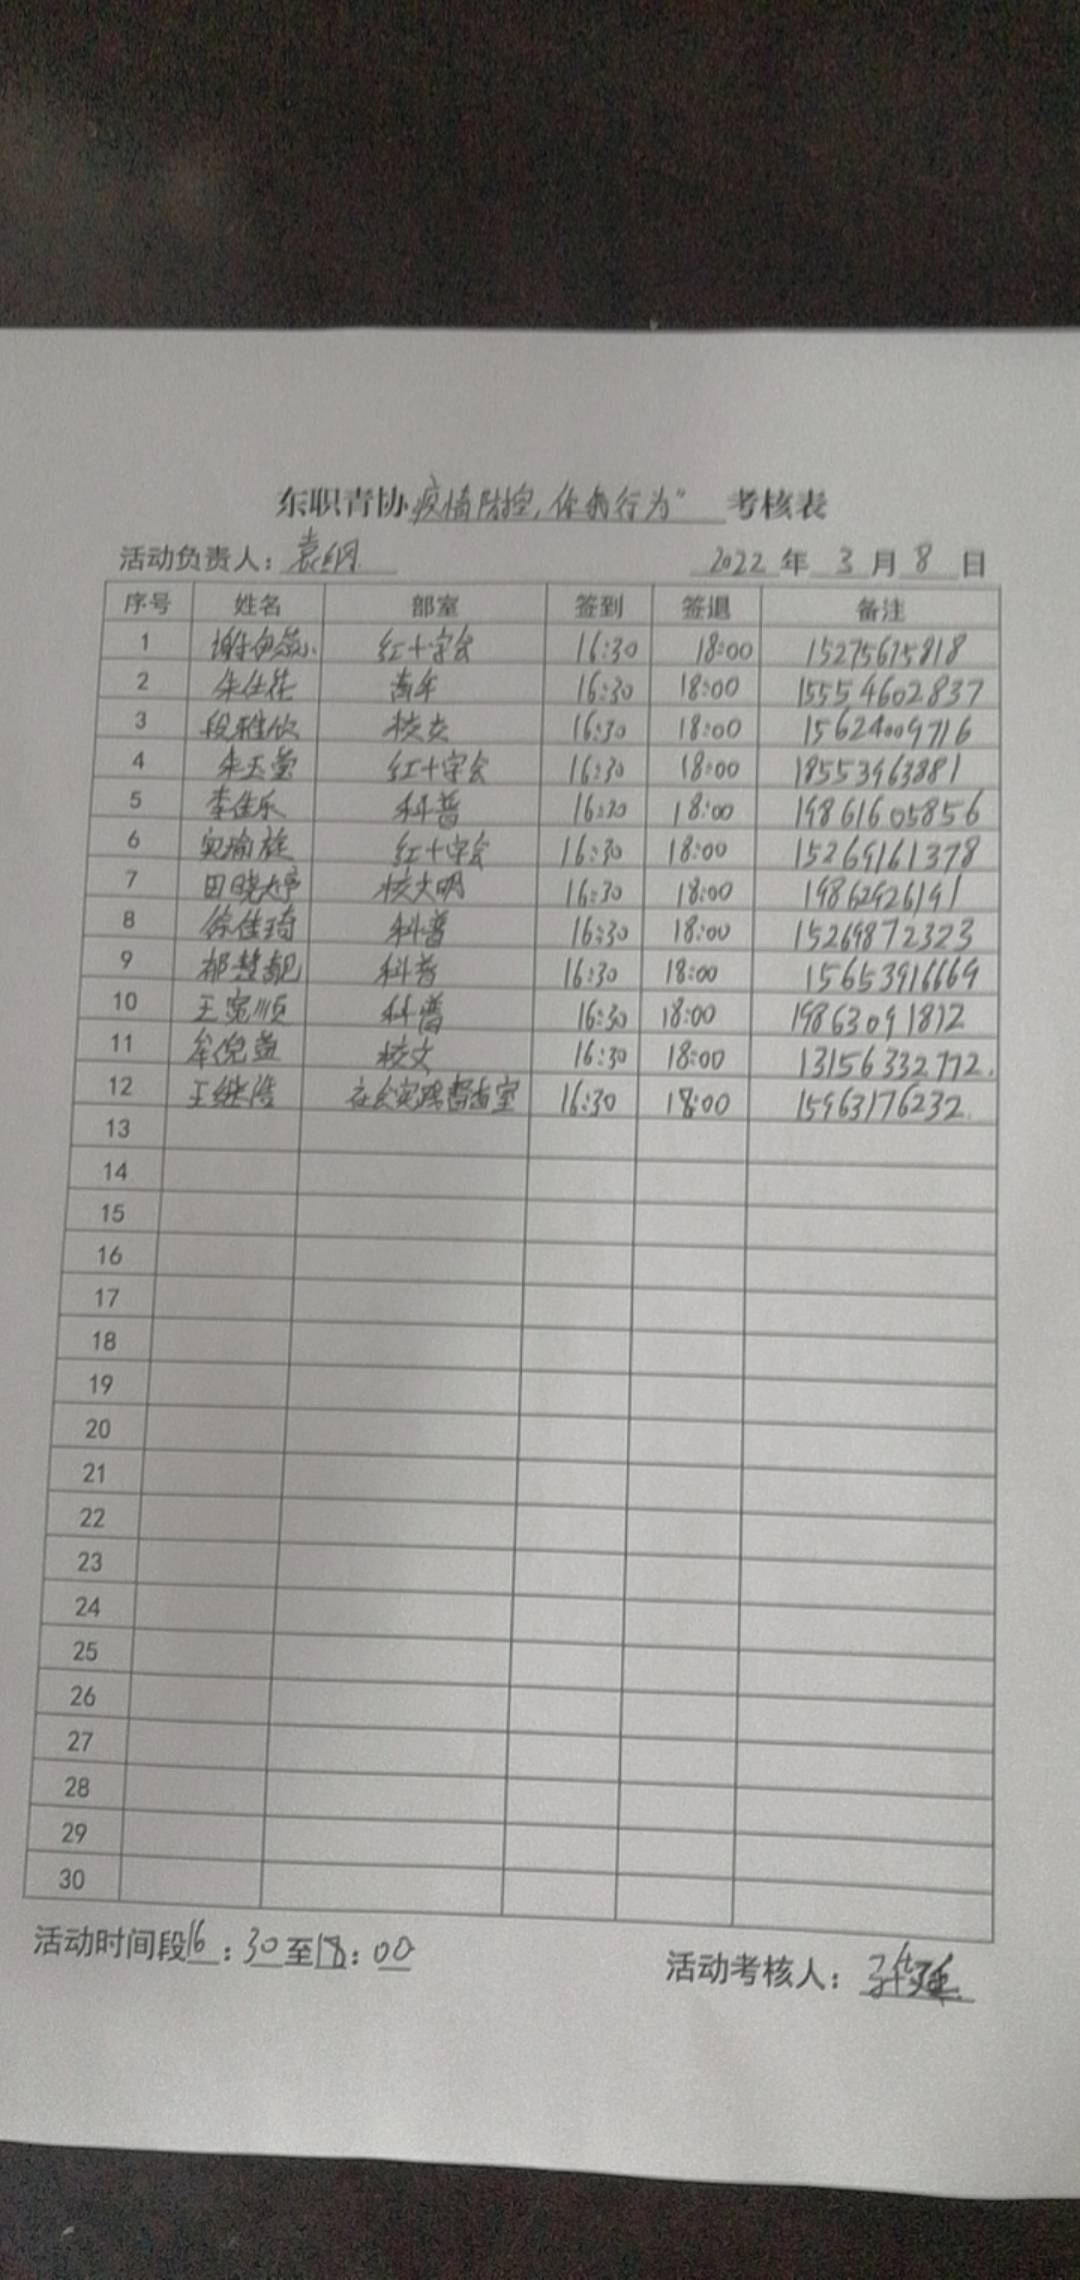 东职青协疫情防控,你我行为” 考核表
活动负责人: 袁纲 2022 年 3 月 8 日
序号 姓名 部室 签到 签退 备注
1 红十字会 16:30 18:00 15275675818
2 朱仕花 青年 16:30 18:00 15554602837
3 段雅欣 校友 16:30 18:00 15624009716
4 朱玉莹 红十字会 16:30 18:00 18553963881
5 李佳乐 科普 16:30 18:00 19861605856
6 红十字会 16:30 18:00 15269161378
7 田晓婷 校文明 16:30 18:00 19862926191
8 徐佳琦 科普 16:30 18:00 15269872323
9 郝慧靓 科普 16:30 18:00 15653916669
10 王宽顺 科普 16:30 18:00 19863091812
11 牟倪萱 校文 16:30 18:00 13156332772.
12 王继浩 社会实践督查室 16:30 18:00 15963176232.
13
14
15
16
17
18
19
20
21
22
23
24
25
26
27
28
29
30
活动时间段16:30至18:00 活动考核人: